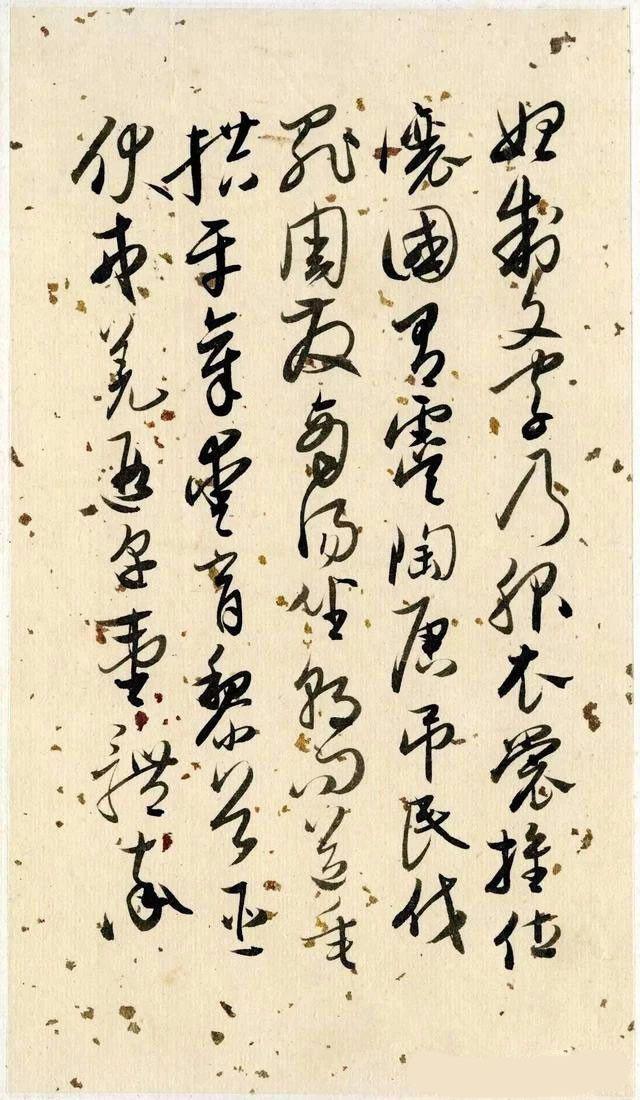 始制文字乃服衣裳推位
讓國有虞陶唐吊民伐
罪周發商湯坐朝問道垂
拱平章愛育黎首臣
伏戎羌遐邇壹體率